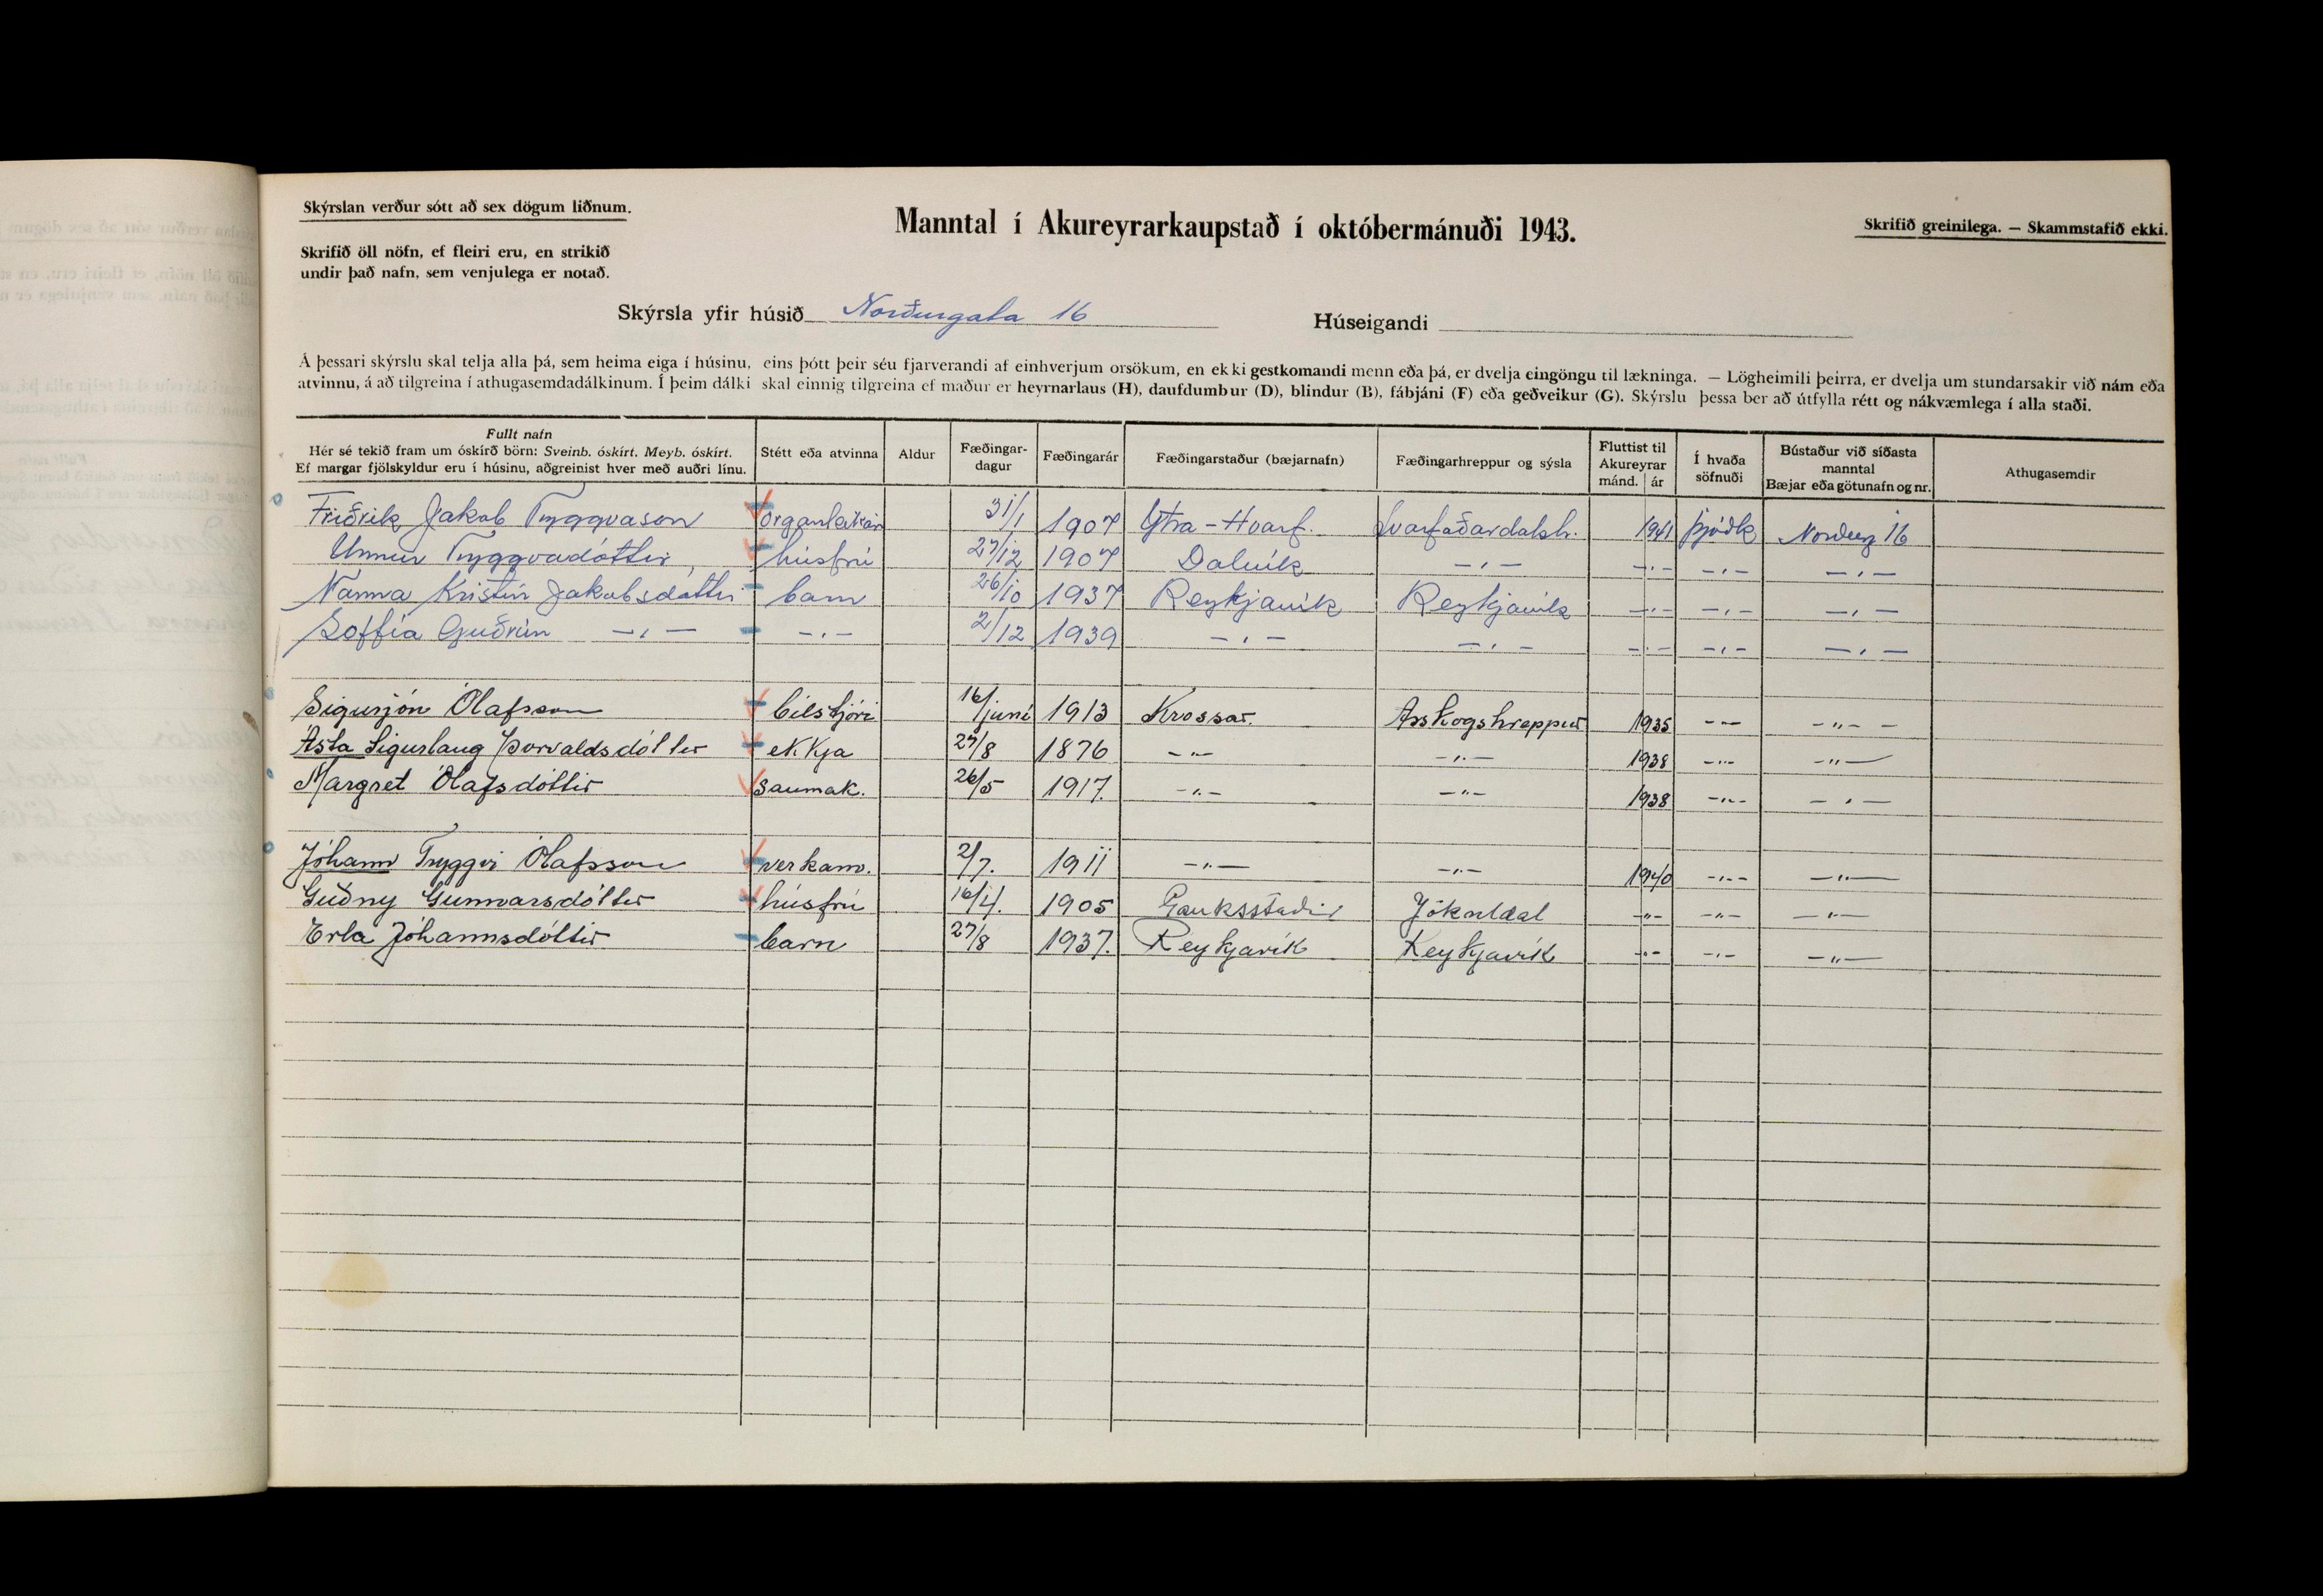 Skýrslan verður sótt að sex dögum liðnum.
Manntal í Akureyrarkaupstað í októbermánuði 1943.
Skrifið greinilega. — Skammstafið ekki.
Skrifið öll nöfn, ef fleiri eru, en strikið
undir það nafn, sem venjulega er notað.
Skýrsla yfir húsið Norðurgata 16 Húseigandi
Á þessari skýrslu skal telja alla þá, sem heima eiga í húsinu, eins þótt þeir séu fjarverandi af einhverjum orsökum, en ekki gestkomandi menn eða þá, er dvelja eingöngu til lækninga. — Lögheimili þeirra, er dvelja um stundarsakir við nám eða
atvinnu, á að tilgreina í athugasemdadálkinum. Í þeim dálki skal einnig tilgreina ef maður er heyrnarlaus (H), daufdumbur (D), blindur (B), fábjáni (F) eða geðveikur (G). Skýrslu þessa ber að útfylla rétt og nákvæmlega í alla staði.
Fullt nafn
Hér sé tekið fram um óskírð börn: Sveinb. óskírt. Meyb. óskírt.
Ef margar fjölskyldur eru í húsinu, aðgreinist hver með auðri línu.
Stétt eða atvinna
Aldur
Fæðingar-
dagur
Fæðingarár
Fæðingarstaður (bæjarnafn)
Fæðingarhreppur og sýsla
Fluttist til
Akureyrar
mánd. ár
Í hvaða
söfnuði
Bústaður við síðasta
manntal
Bæjar eða götunafn og nr.
Athugasemdir
Friðrik Jakob Tryggvason 31/1 1907 Ytra-Hvarf. Svarfaðardalsh. 1941 Þjóðk Norðurg 16
Unnur Tryggvadóttir húsfrú 27/12 1907 Dalvík —〃— —〃— —〃— —〃—
Nanna Kristín Jakobsdóttir barn 26/10 1937 Reykjavík Reykjavík —〃— —〃— —〃—
Soffía Guðrún —〃— —〃— 2/12 1939 —〃— —〃— —〃— —〃— —〃—
Sigurjón Ólafsson bílstjóri 16/júní 1913 Krossar. Arskogshreppur 1935 —〃— —〃—
Ásta Sigurlaug Þorvaldsdóttir ekkja 27/8 1876 —〃— —〃— 1938 —〃— —〃—
Margret Ólafsdóttir saumak. 26/5 1917. —〃— —〃— 1938 —〃— —〃—
Jóhann Tryggvi Ólafsson verkam. 2/7. 1911 —〃— —〃— 1940 —〃— —〃—
Guðny Gunnarsdóttir húsfrú 16/4. 1905 Gauksstaðir Jökuldal —〃— —〃— —〃—
Erla Jóhannsdóttir barn 27/8 1937. Reykjavík Reykjavík —〃— —〃— —〃—